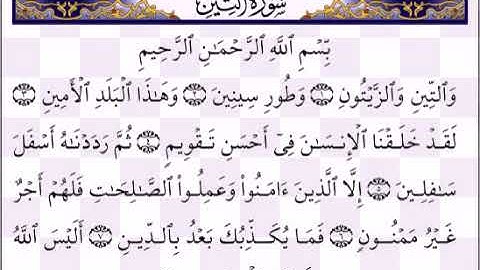 سُورَةُ التِّينِ
بِّسْمِ ٱللَّهِ ٱلرَّحْمَـٰنِ ٱلرَّحِيمِ
وَٱلتِّينِ وَٱلزَّيْتُونِ ١ وَطُورِ سِينِينَ ٢ وَهَـٰذَا ٱلْبَلَدِ ٱلْأَمِينِ ٣
لَقَدْ خَلَقْنَا ٱلْإِنسَـٰنَ فِىٓ أَحْسَنِ تَقْوِيمٍ ٤ ثُمَّ رَدَدْنَـٰهُ أَسْفَلَ
سَـٰفِلِينَ ٥ إِلَّا ٱلَّذِينَ ءَامَنُوا۟ وَعَمِلُوا۟ ٱلصَّـٰلِحَـٰتِ فَلَهُمْ أَجْرٌ
غَيْرُ مَمْنُونٍ ٦ فَمَا يُكَذِّبُكَ بَعْدُ بِٱلدِّينِ ٧ أَلَيْسَ ٱللَّهُ